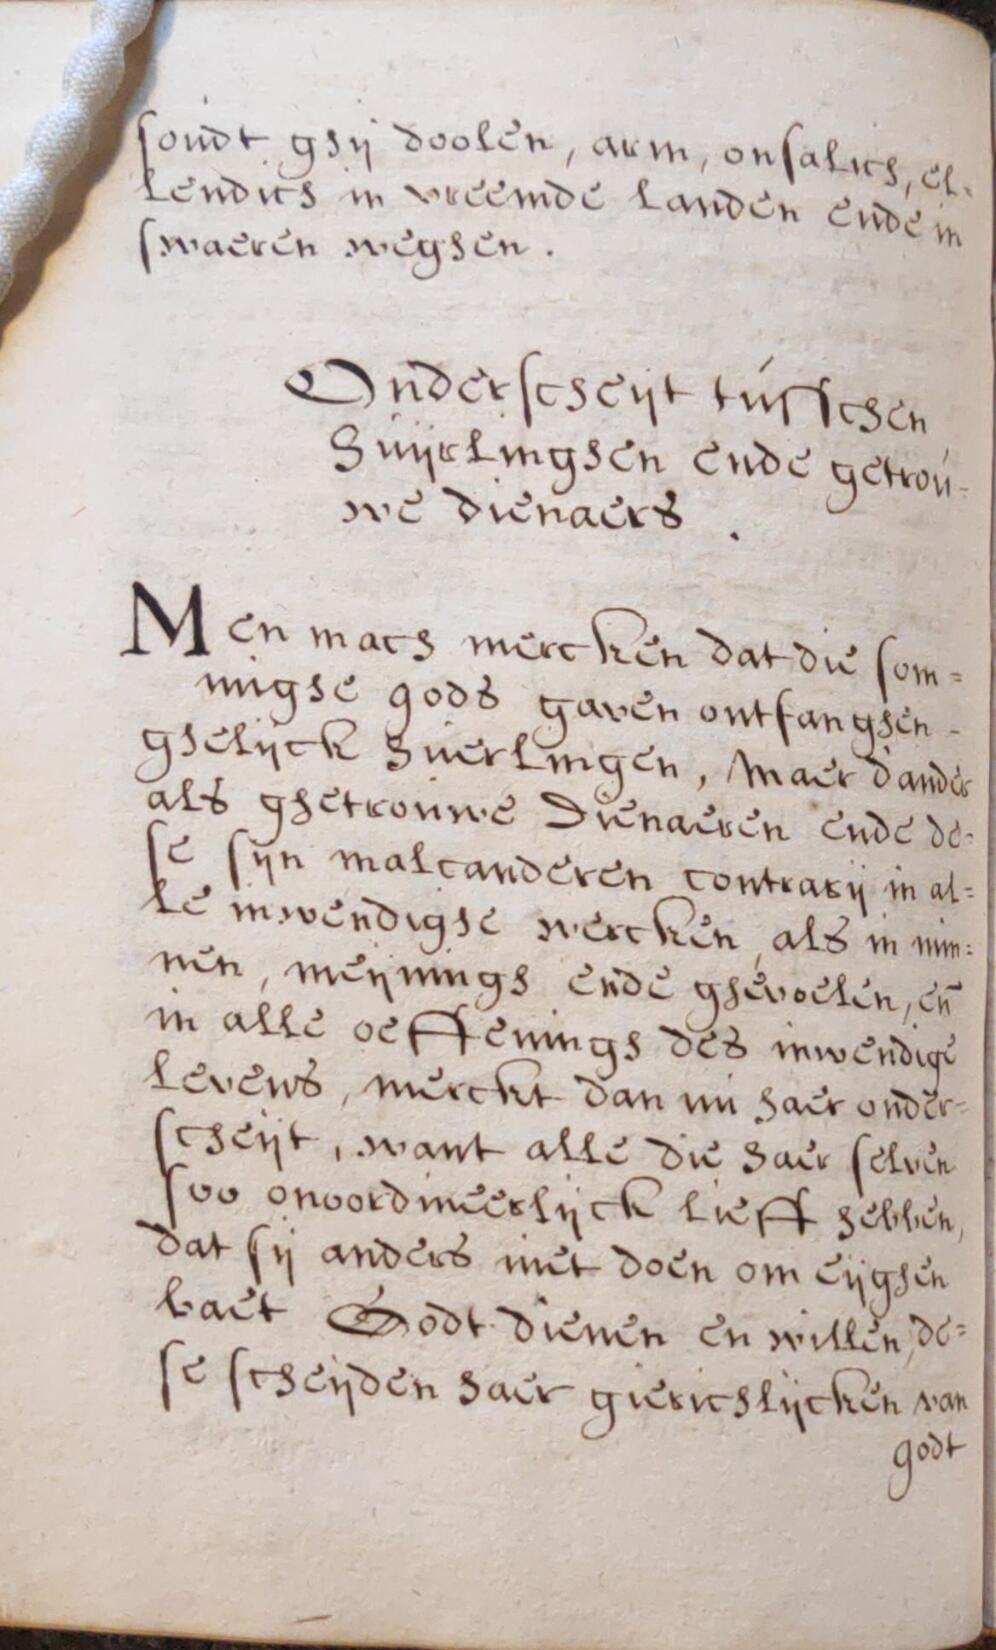 soudt ghij doolen, arm, onsalich, el-
lendich in vreemde landen ende in
swaeren weghen.
Onderscheijt tusschen
Huijrlinghen ende getrou-
we dienaers.
Men mach mercken dat die som=
mighe gods gaven ontfanghen -
ghelijck huerlingen, Maer d'ander
als ghetrouwe Dienaeren ende de=
se sijn malcanderen contrarij in al=
le inwendighe wercken, als in min=
nen, meijningh ende ghevoelen, en̄
in alle oeffeningh des inwendige
levens, merckt dan nu haer onder=
scheijt, want alle die haer selven
soo onoordineerlijck lieff hebben,
dat sij anders niet doen om eijghen
baet Godt dienen en willen, de=
se scheijden haer gierichlijcken van
godt